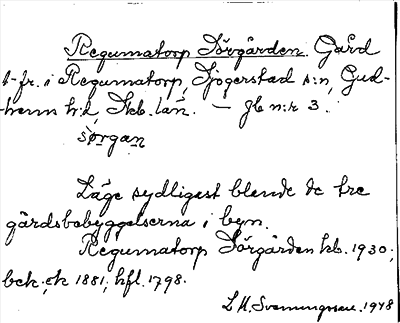 Regumatorp Sörgården. Gård
1-fr. i Regumatorp, Sjogerstad s:n, Gud-
hems h:d, Skb. län. — Jb n:r 3.
sörgan
Läge sydligast blende de tre
gårdsbebyggelserna i byn.
Regumatorp Sörgården kb. 1930;
bek; ek 1881; hfl. 1798.
L. H. 1948